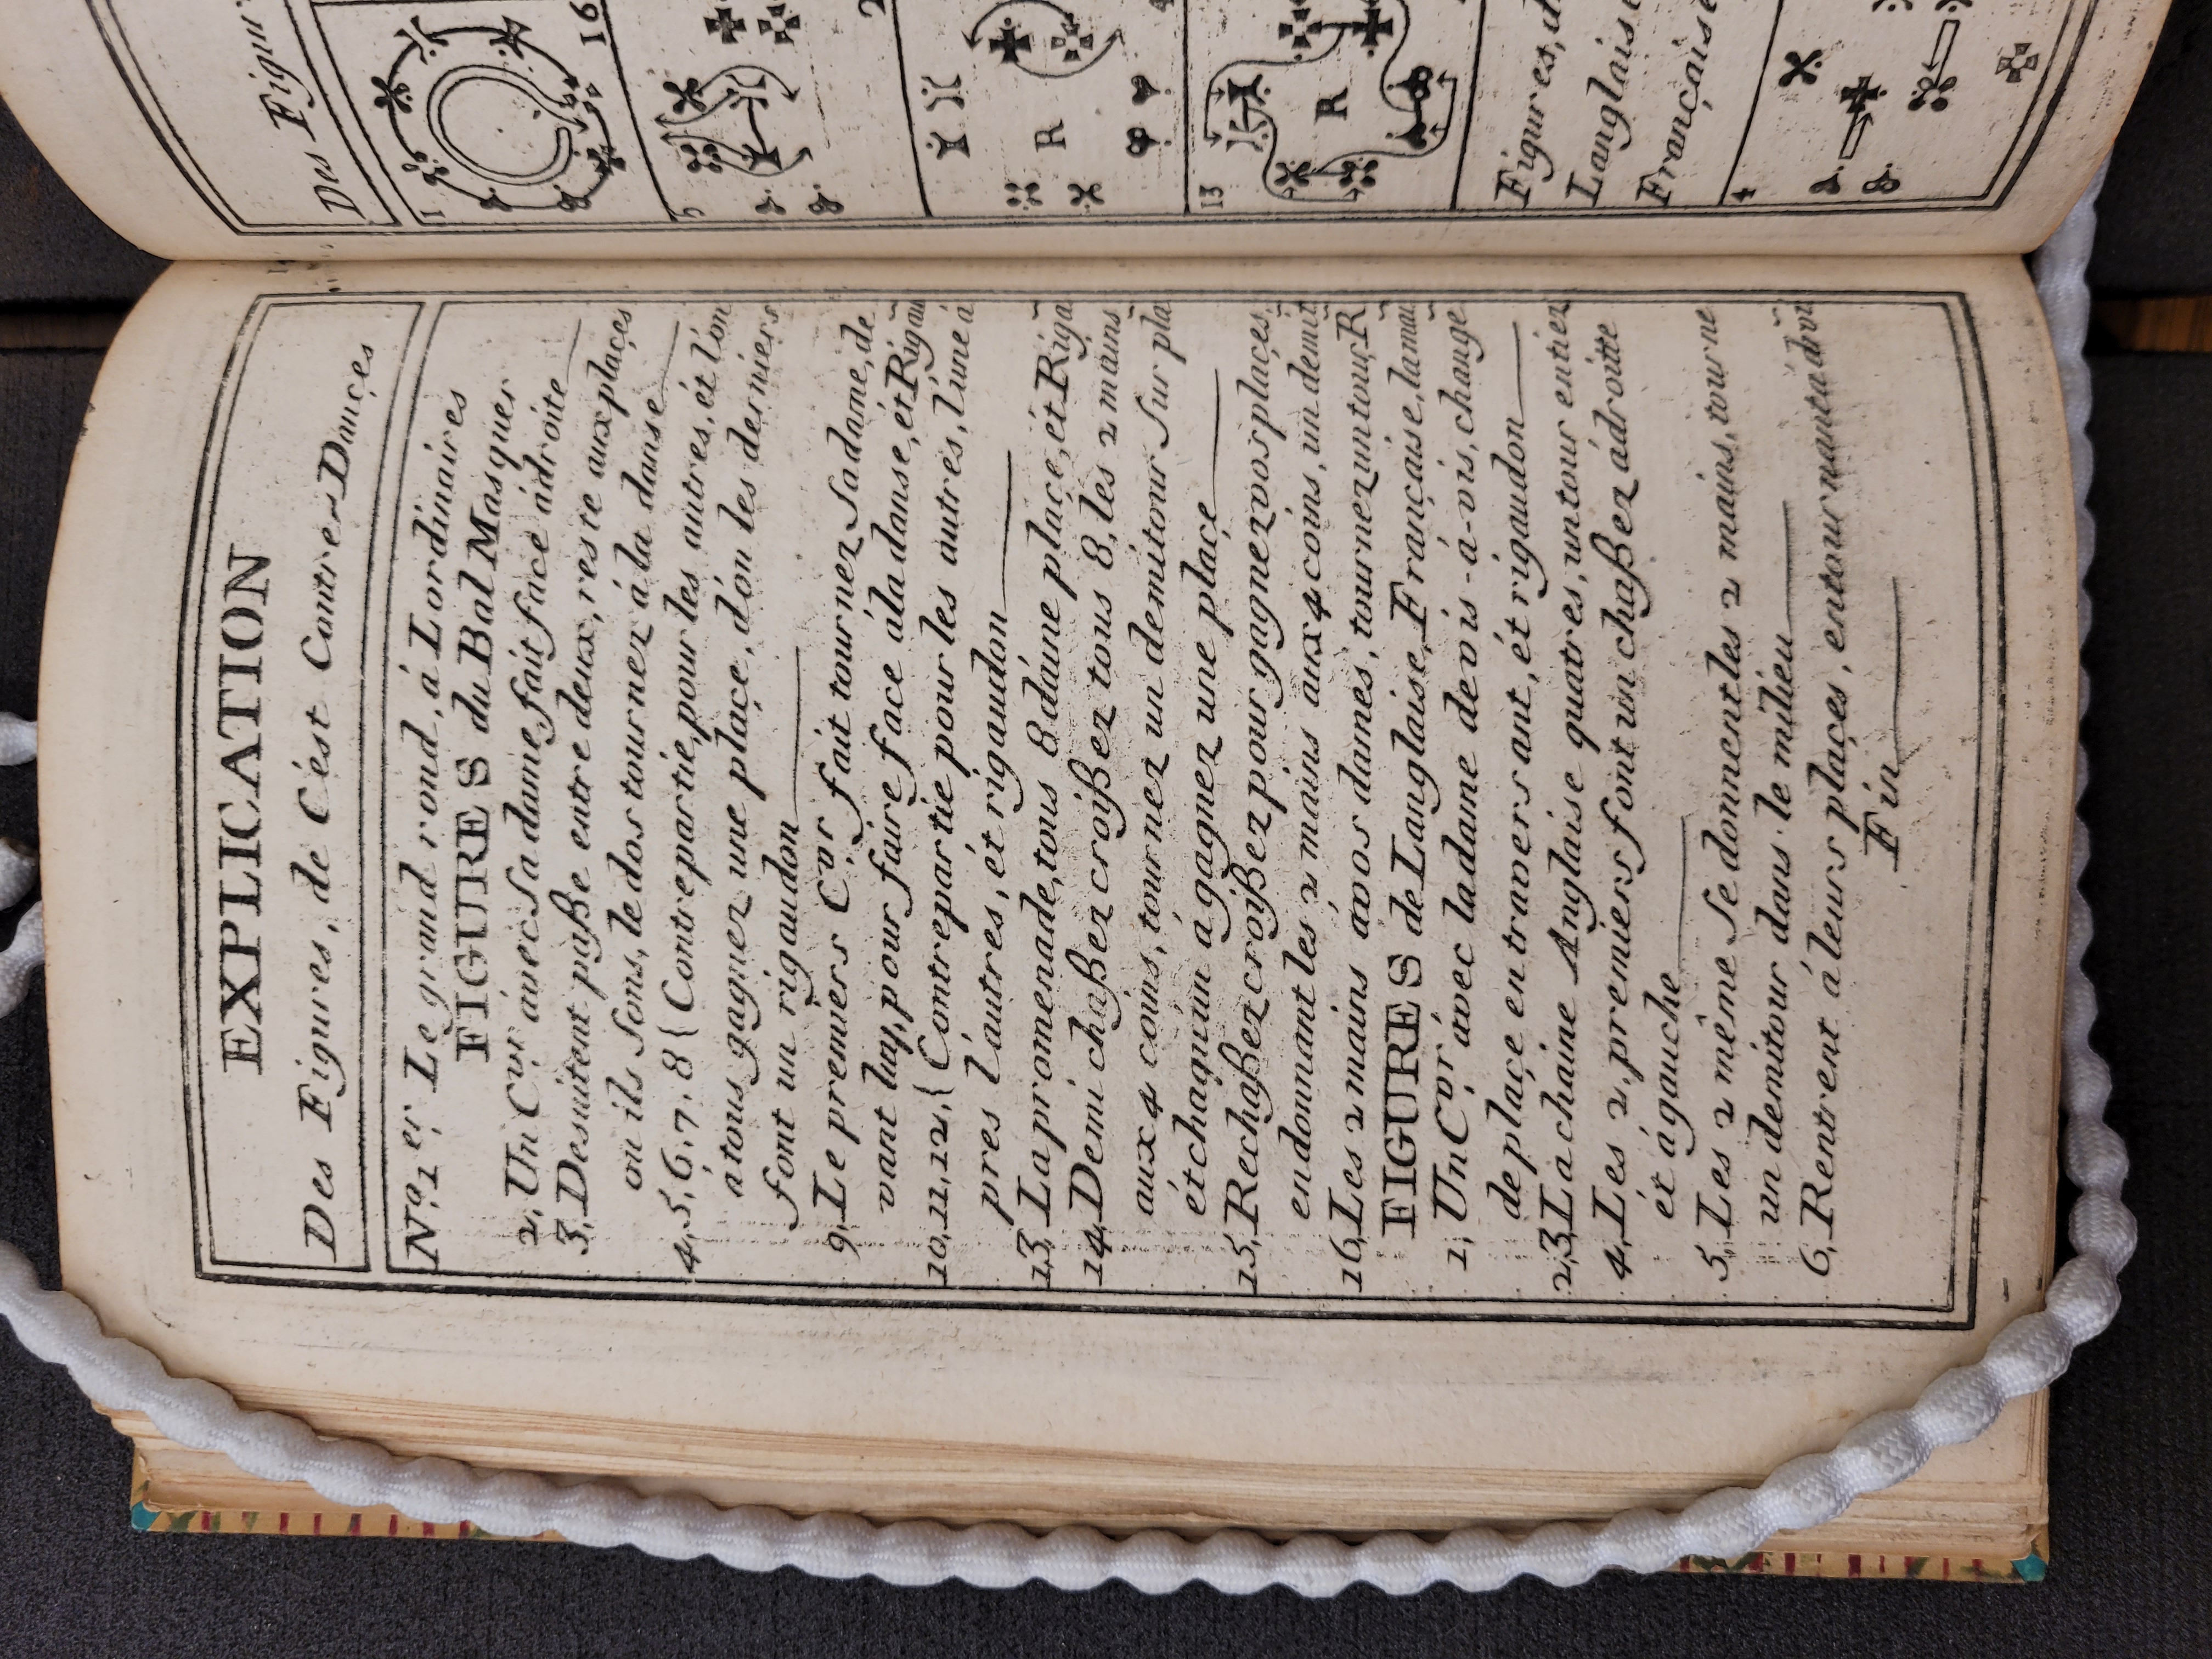 EXPLICATION
Des Figures, de C'ést Contres Dançes
N.º 1.er Le grand rond, á Lordinaires
FIGURES du Bal Masquer
2, Un C.vr. ávec Sa dame fait face ádroite
3, Desuitent paße entre deux, reste aux plaçes
ou ils Sons, le dos tournez á la danse
4, 5, 6, 7, 8 { Contrepartie, pour les autres, ét l'on
a tous gagnez une plaçe, d'on les derniers
font un rigaudon
9, Le premiers C.vr. fait tournez Sa dame, de
vant luy, pour faire face ála danse, ét Rigau
10, 11, 12, { Contrepartie pour les autres, l'une á
pres l'autres, ét rigaudon
13, La promenade, tous 8 dáune plaçe, ét Riga
14, Demi chaßez croißez tous 8, les 2 mains
aux 4 coins, tournez un demitour Sur pla
ét chaqu'un á gagnez une plaçe
15, Rechaßez croißez pour gagnez vos plaçes,
en donnant les 2 mains aux 4 coins, un demit
16, Les 2 mains avos dames, tournez un tour, R
FIGURES de Langlaise, Française, la mau
1, Un C.vr. ávec la dame de vis-á-vis, change
de plaçe en traversant, ét rigaudon
2, 3, La chaine Anglaise quatres, un tour entiez
4, Les 2, premiers font un chaßez ádroitte
ét ágauche
5, Les 2 même Se donnent les 2 mains, tourne
un demitour dans le milieu
6, Rentrent áleurs plaçes, entour nant ádroit
Fin
Des Figur
1
16
5
R
13
R
Figures, d
Langlais
Français
4